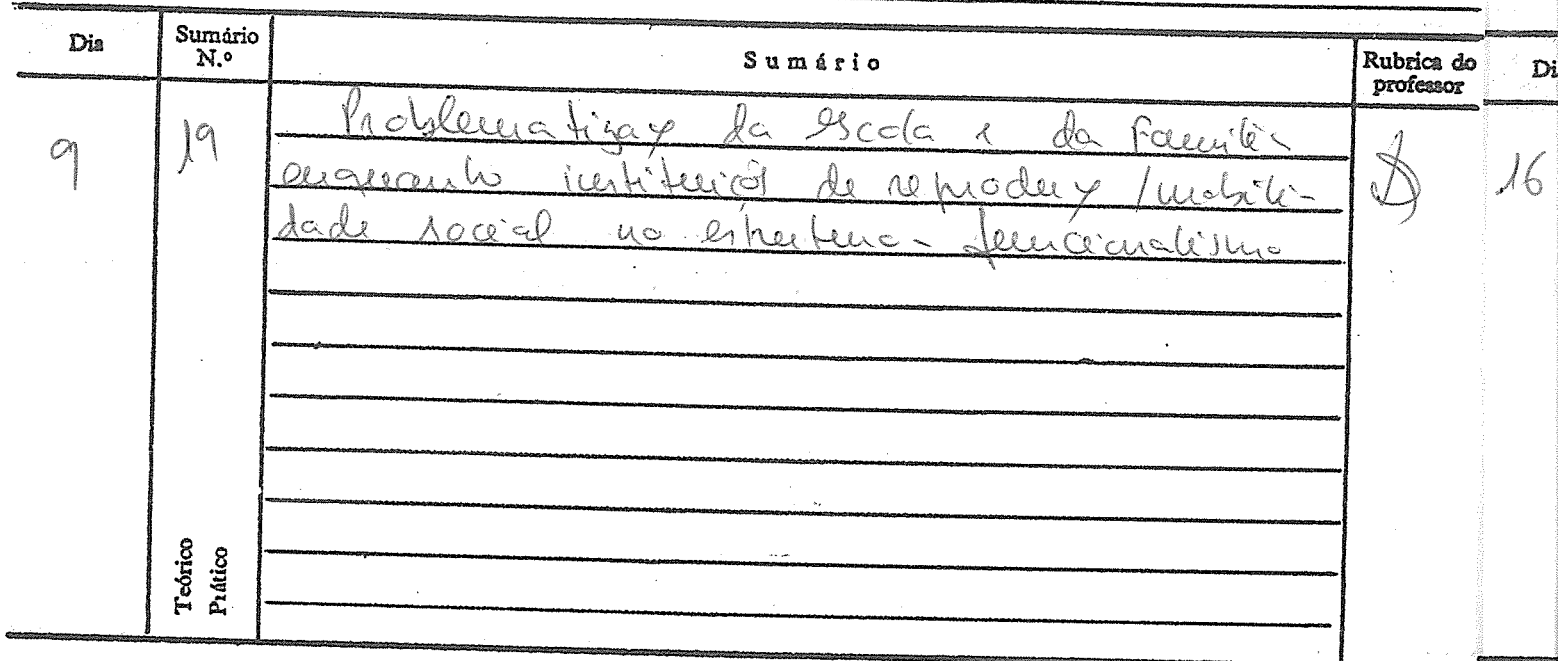 Dia Sumário N.º Sumário Rubrica do professor Di
9 19 Problematizaç da escola e da família 16
enquanto instituiçõs de reproduç / mobili-
dade social no estruturo-funcionalismo
Teórico
Prático